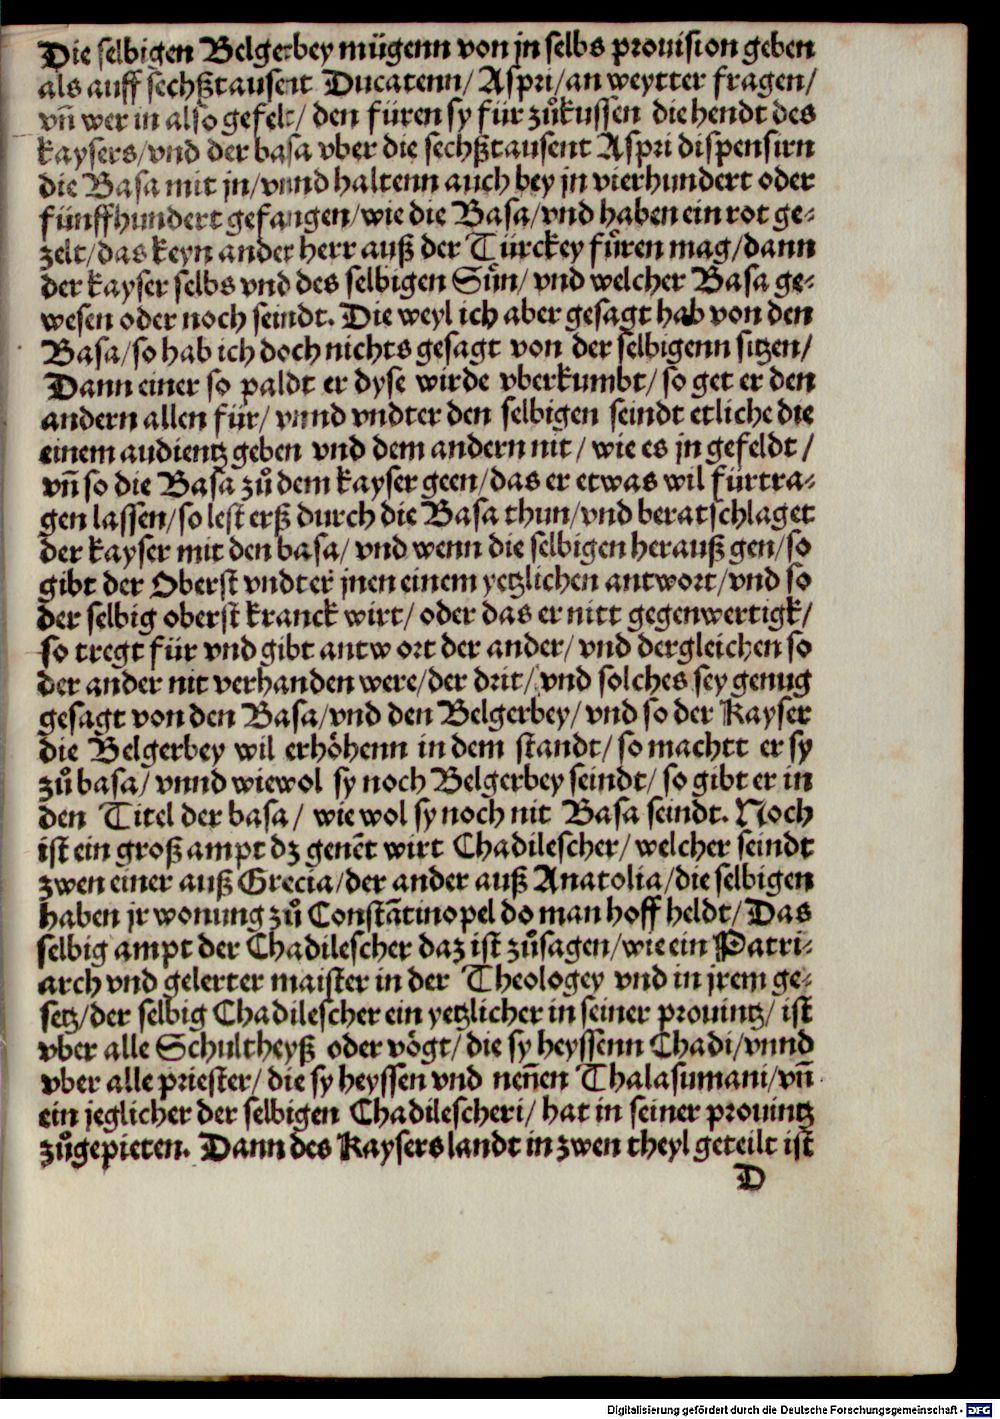 Die selbigen Belgerbey mügenn von jn selbs prouision geben
als auff sechßtausent Ducatenn/ Aspri/ an weytter fragen/
vn̄ wer in also gefelt/ den füren sy für zůkussen die hendt des
kaysers/ vnd der basa vber die sechßtausent Aspri dispensirn
die Basa mit jn/ vnnd haltenn auch bey jn vierhundert oder
fünffhundert gefangen/ wie die Basa/ vnd haben ein rot ge⸗
zelt/ das keyn ander herr auß der Türckey fůren mag/ dann
der kayser selbs vnd des selbigen Sůn/ vnd welcher Basa ge⸗
wesen oder noch seindt. Die weyl ich aber gesagt hab von den
Basa/ so hab ich doch nichts gesagt von der selbigenn sitzen/
Dann einer so paldt er dyse wirde vberkumbt/ so get er den
andern allen für/ vnnd vndter den selbigen seindt etliche die
einem audientz geben vnd dem andern nit/ wie es jn gefeldt/
vn̄ so die Basa zů dem kayser geen/ das er etwas wil fürtra⸗
gen lassen/ so lest erß durch die Basa thun/ vnd beratschlaget
der kayser mit den basa/ vnd wenn die selbigen herauß gen/ so
gibt der Oberst vndter jnen einem yetzlichen antwort/ vnd so
der selbig oberst kranck wirt/ oder das er nitt gegenwertigk/
so tregt für vnd gibt antwort der ander/ vnd dergleichen so
der ander nit verhanden were/ der drit/ vnd solches sey genug
gesagt von den Basa/ vnd den Belgerbey/ vnd so der Kayser
die Belgerbey wil erhöhenn in dem standt/ so machtt er sy
zů basa/ vnnd wiewol sy noch Belgerbey seindt/ so gibt er in
den Titel der basa/ wie wol sy noch nit Basa seindt. Noch
ist ein groß ampt dz genēt wirt Chadilescher/ welcher seindt
zwen einer auß Grecia/ der ander auß Anatolia/ die selbigen
haben jr wonung zů Constātinopel do man hoff heldt/ Das
selbig ampt der Chadilescher daz ist zůsagen/ wie ein Patri⸗
arch vnd gelerter maister in der Theologey vnd in jrem ge⸗
setz/ der selbig Chadilescher ein yetzlicher in seiner prouintz/ ist
vber alle Schultheyß oder vögt/ die sy heyssenn Chadi/ vnnd
vber alle priester/ die sy heyssen vnd nen̄en Thalasumani/ vn̄
ein jeglicher der selbigen Chadilescheri/ hat in seiner prouintz
zůgepieten. Dann des Kaysers landt in zwen theyl geteilt ist
D
Digitalisierung gefördert durch die Deutsche Forschungsgemeinschaft - DFG